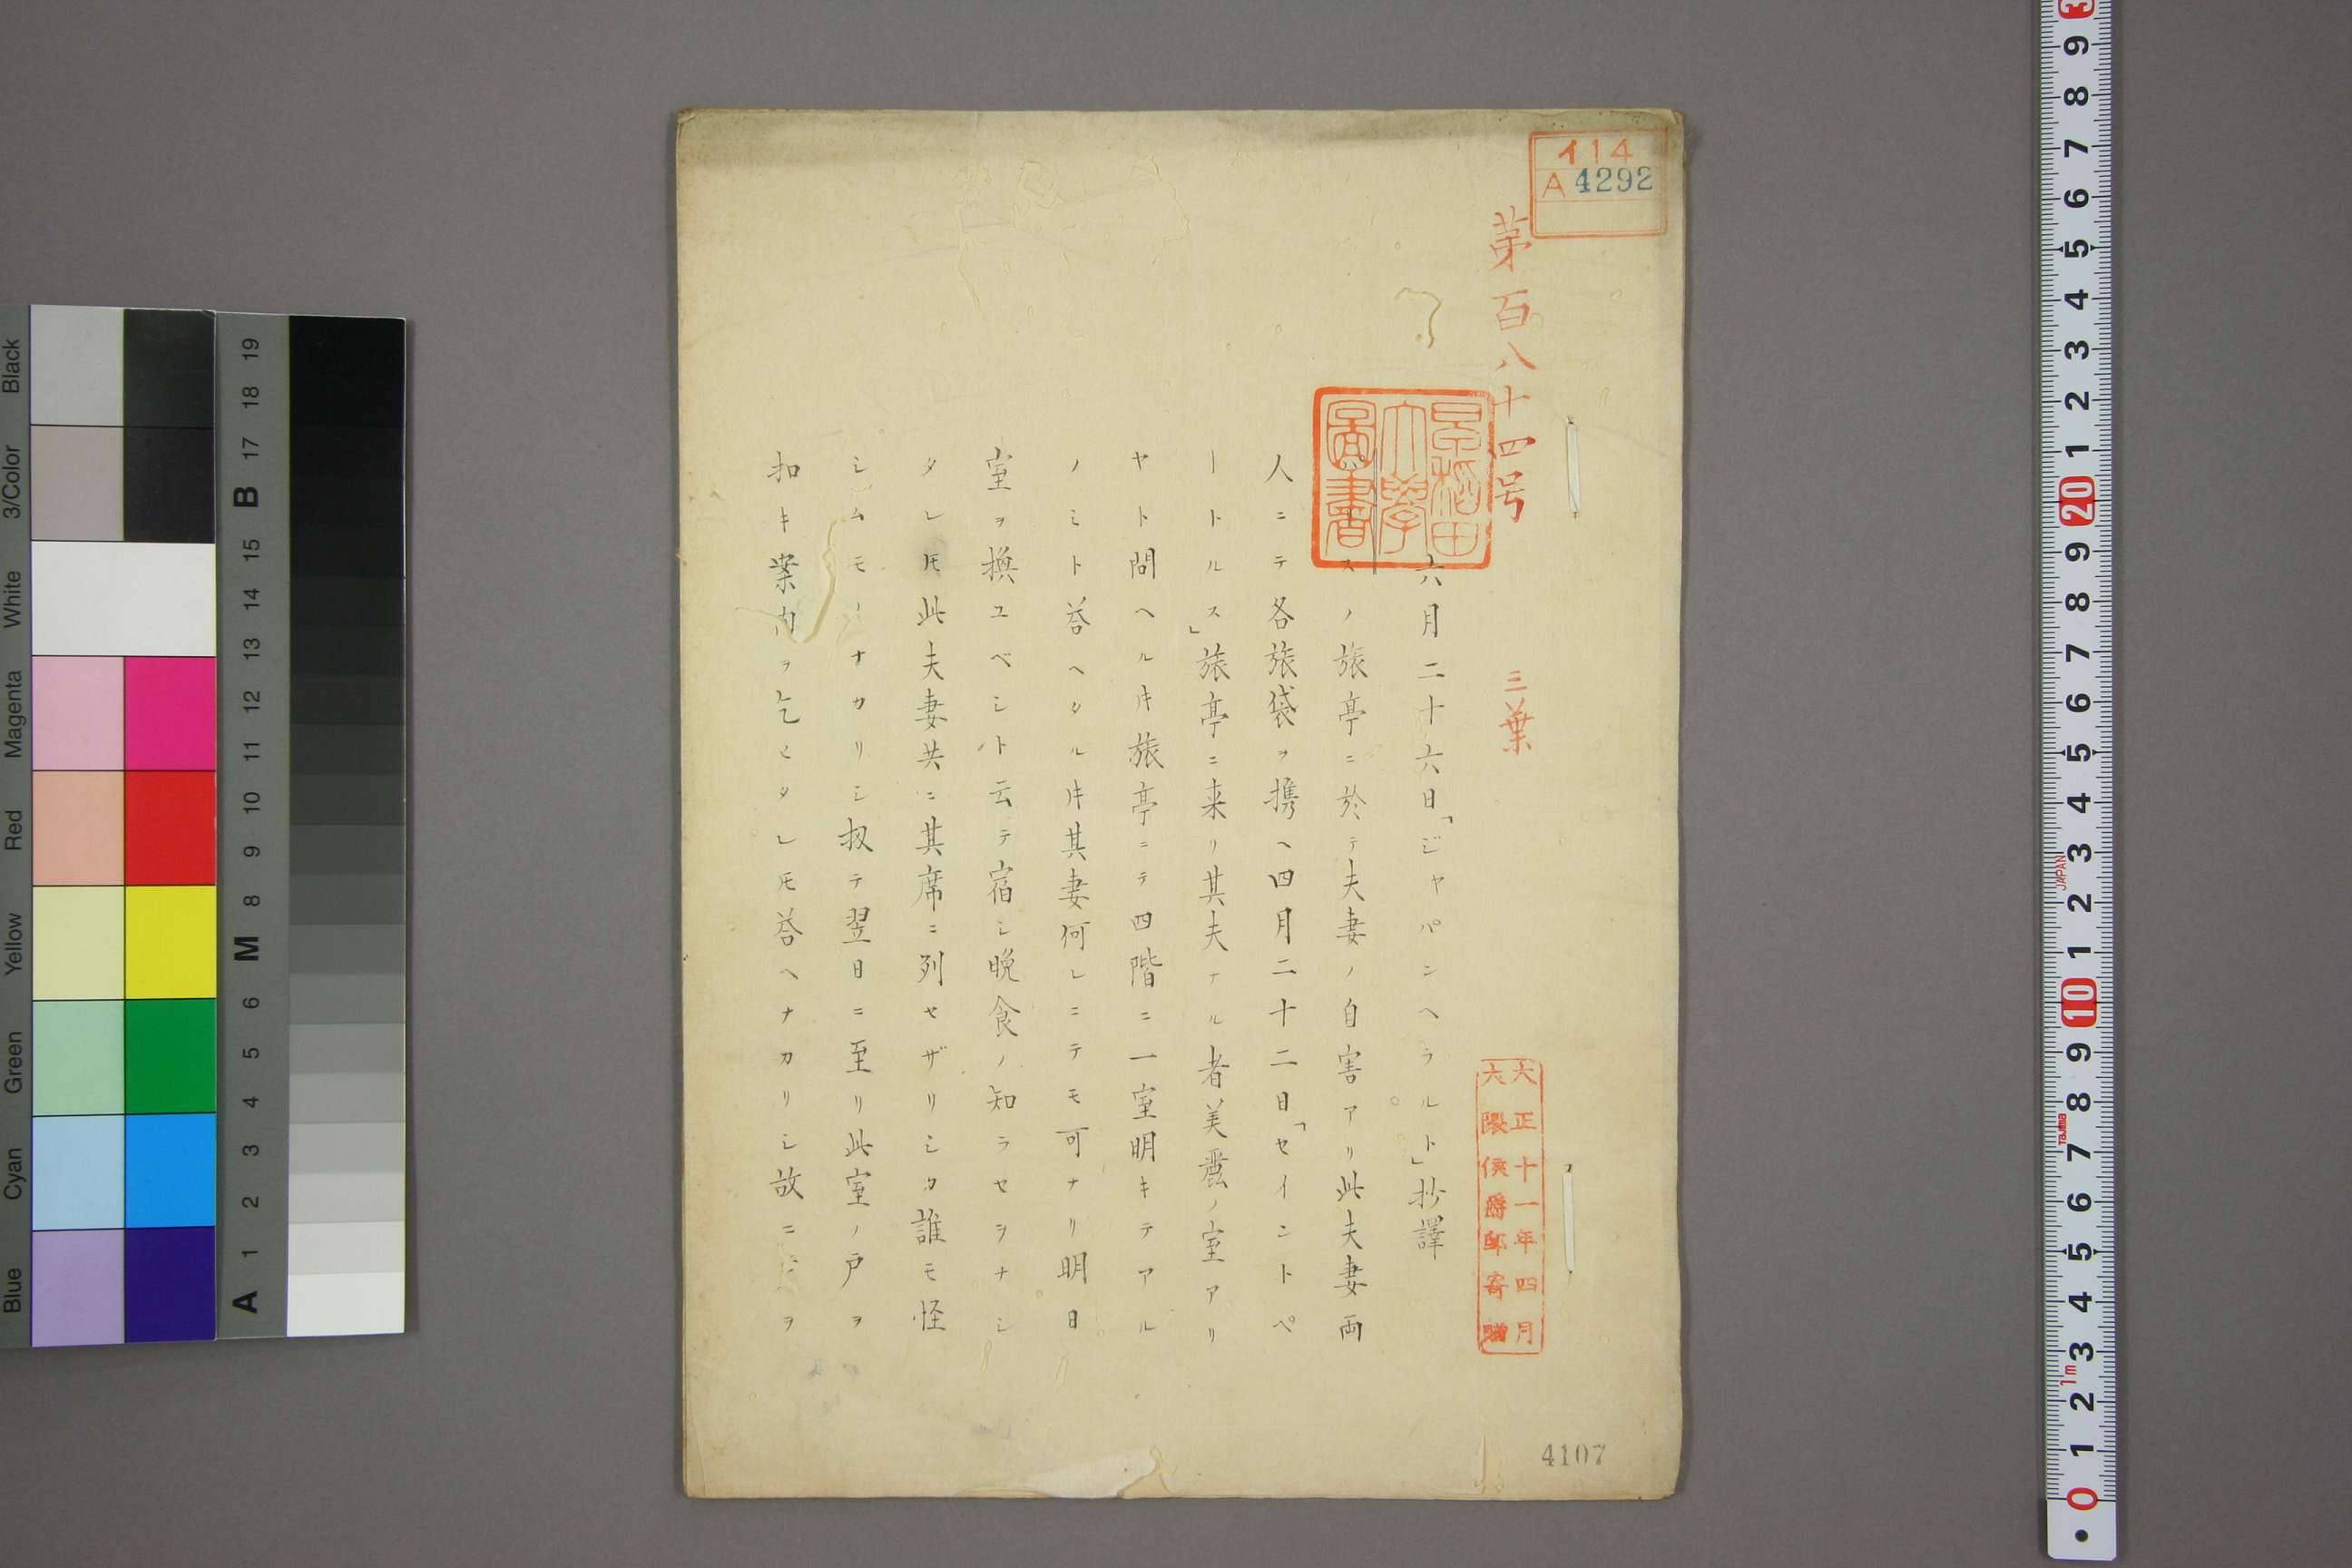 イ14
A 4292
第百八十四号 三葉
早稲田大學圖書
大正十一年四月
大隈侯爵邸寄贈
六月二十六日「ジヤパンヘラルト」抄譯
スノ旅亭ニ於テ夫妻ノ自害アリ此夫妻両
人ニテ各旅袋ヲ携ヘ四月二十二日「セイントペ
ートルス」旅亭ニ来リ其夫ナル者美麗ノ室アリ
ヤト問ヘルトキ旅亭ニテ四階ニ一室明キテアル
ノミト答ヘタルトキ其妻何レニテモ可ナリ明日
室ヲ換ユベシト云テ宿シ晩食ノ知ラセヲナシ
タレ𪜈此夫妻共ニ其席ニ列セザリシカ誰モ怪
シムモノナカリシ扨テ翌日ニ至リ此室ノ戸ヲ
扣キ案内ヲ乞ヒタレ𪜈答ヘナカリシ故ニヲ
4107
JAPAN
Tajima
1m
Black
3/Color
White
Magenta
Red
Yellow
Green
Cyan
Blue